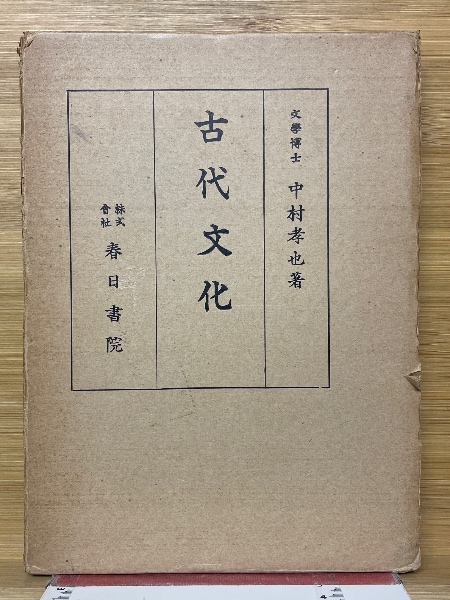 文學博士 中村孝也著
古代文化
株式會社 春日書院